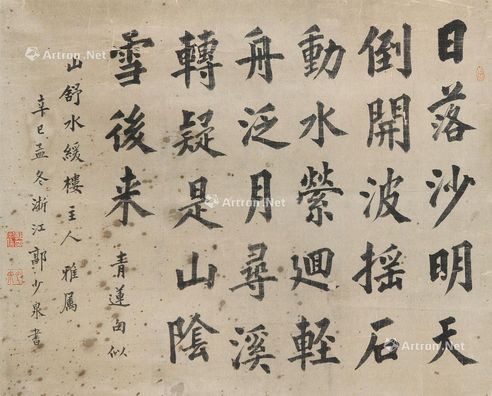 日落沙明天
倒開波摇石
動水縈迴輕
舟泛月尋溪
轉疑是山陰
雪後来
青蓮句似
山舒水緩樓主人雅屬
辛巳孟冬浙江少泉書
Artron.Net
Artron.Net
Artron.Net
Artron.Net
Artron.Net